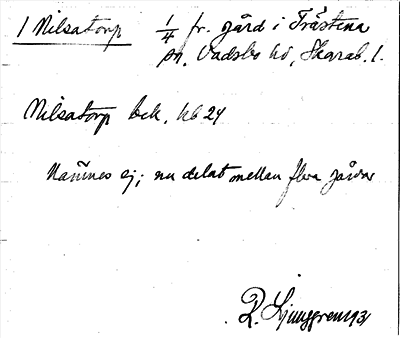 1 Nilsatorp 1/4 fr. gård i Trästena
sn, Vadsbo hd, Skarab. l.
Nilsatorp bek. hb 24
Kännes ej; nu delat mellan flera gårdar
R. Ljunggren 1931